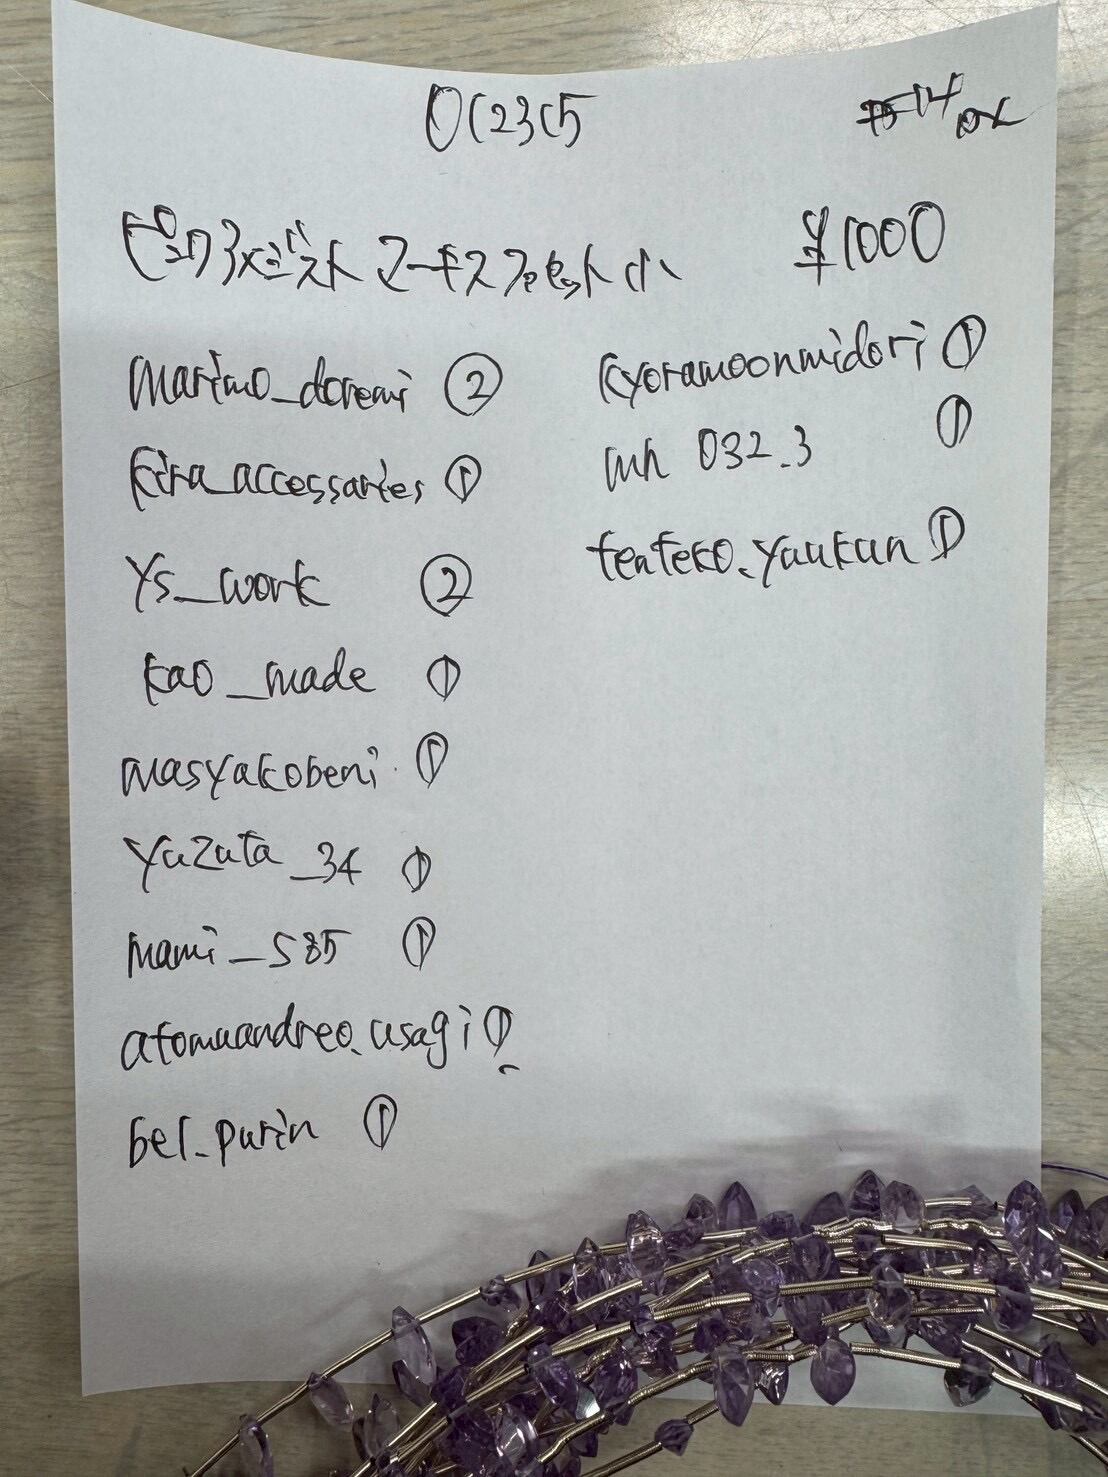 OC23C5
14 ok
ピュアアメジスト マーキスファセット小 ¥1000
marimo_doremi ②
kira_accessories ①
ys_work ②
kao_made ①
masyakobeni ①
yuzuta_34 ①
mami_s85 ①
atomuandreo.usagi ①
bel_purin ①
kyoramoonmidori ①
mh 032_3 ①
tenteko.yuukun ①